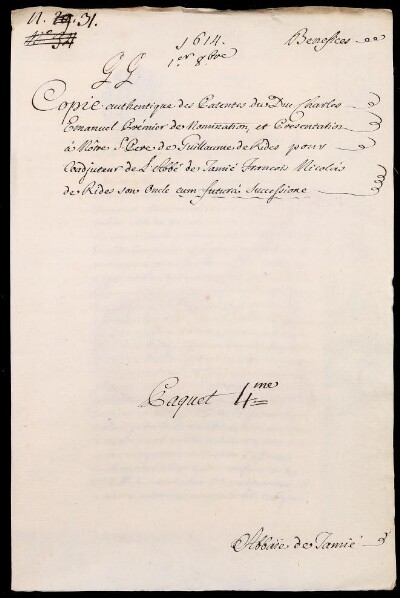 n. 31.
1614. Benefices
1er 8bre
GG
Copie authentique des Patentes du Duc Charles
Emanuel Prémier de Nomination, et Presentation
à Nôtre St Pere de Guillaume de Rides pour
Coadjuteur de L'Abbé de Tamié François Nicolas
de Rides son Oncle cum futura Successione
Paquet 4me
Abbaïe de Tamié